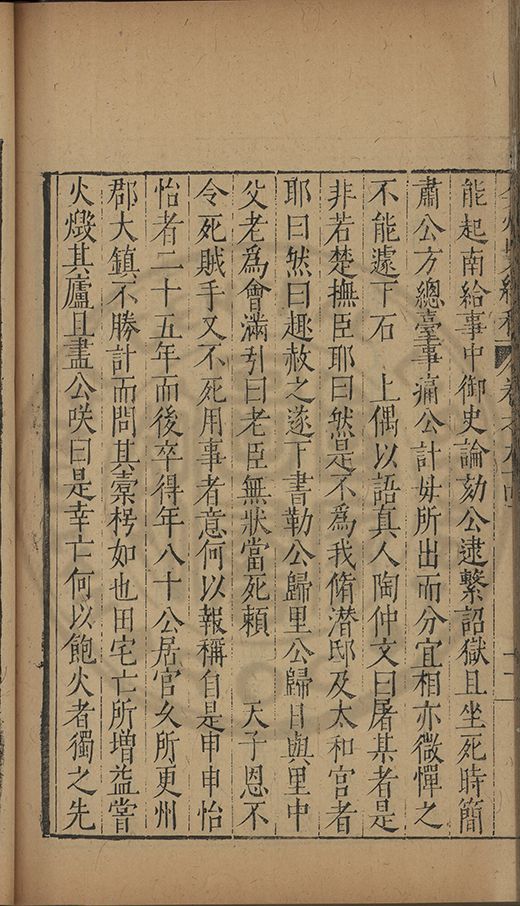 能起南給事中御史論劾公逮繫詔獄且坐死時簡
肅公方總臺事痛公計毋所出而分宜相亦微憚之
不能遽下石　上偶以語真人陶仲文曰屠某者是
非若楚撫臣耶曰然是不為我脩潛邸及太和宮者
耶曰然曰趣赦之遂下書勒公歸里公歸日與里中
父老為會滿引曰老臣無狀當死賴　　天子恩不
令死賊手又不死用事者意何以報稱自是申申怡
怡者二十五年而後卒得年八十公居官久所更州
郡大鎮不勝計而問其橐枵如也田宅亡所增益嘗
火燬其廬且盡公咲曰是幸亡何以飽火者獨之先